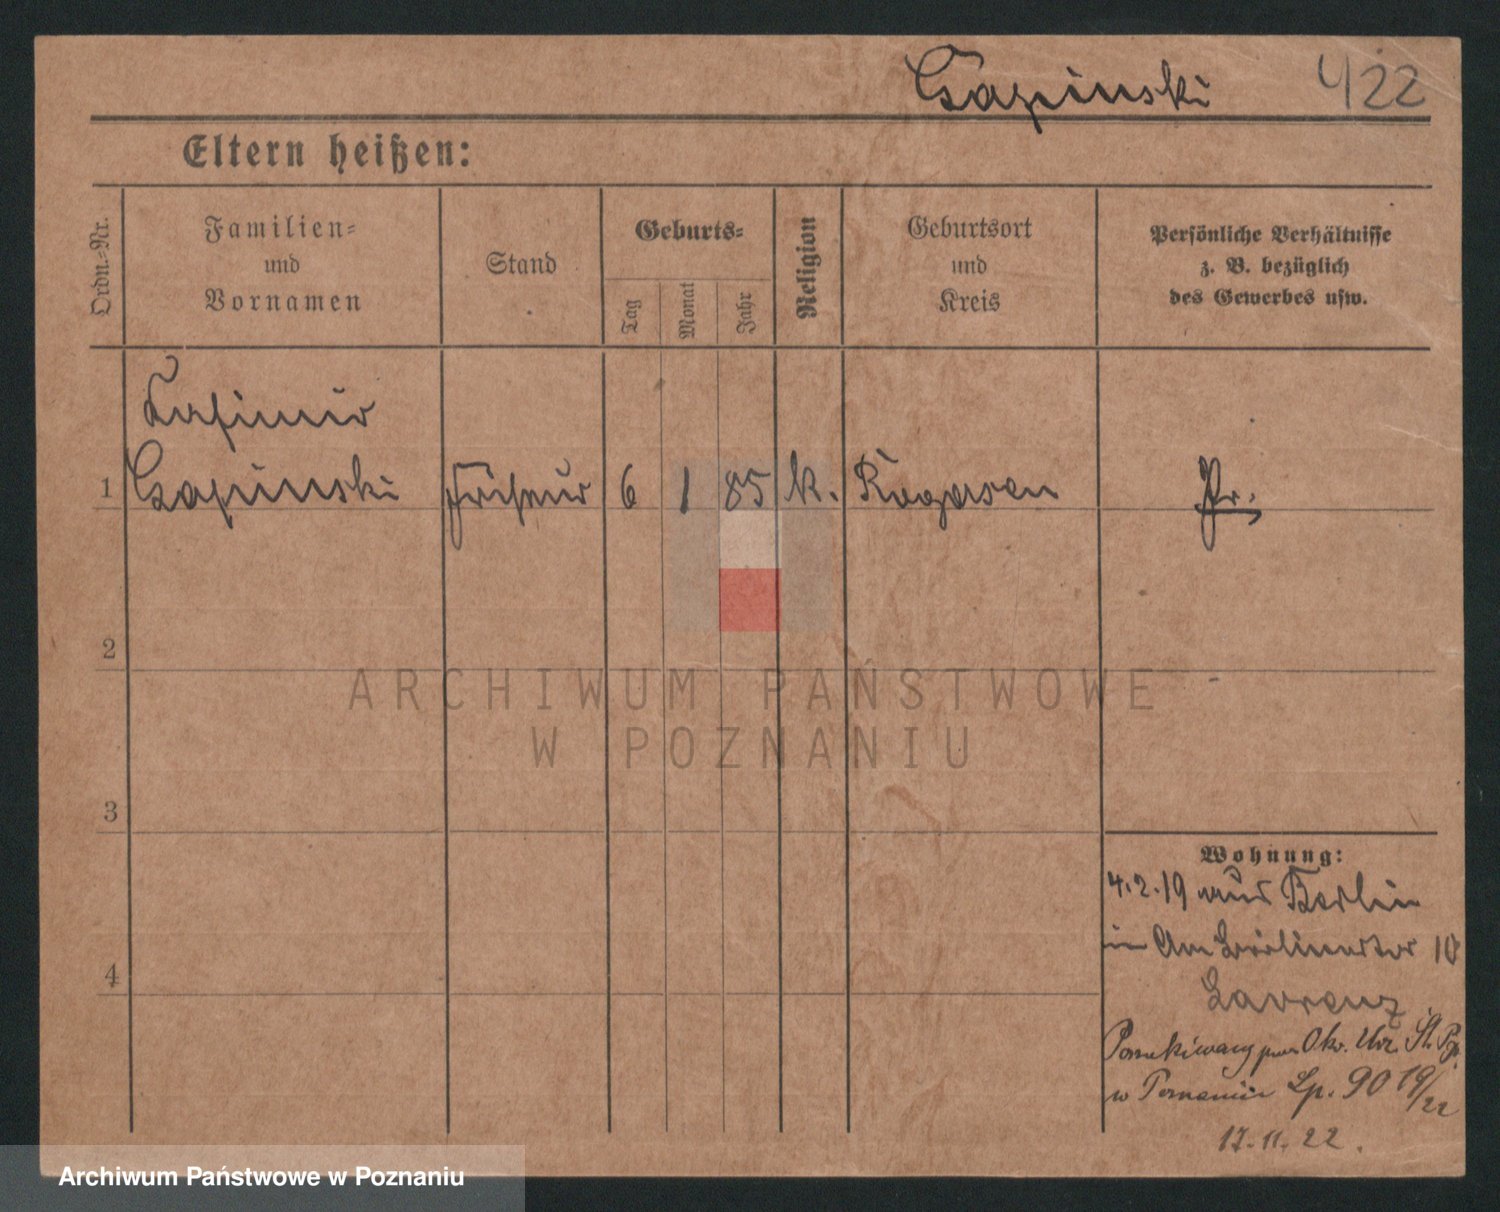 Czapinski 422
Eltern heißen:
Ordn.-Nr.
Familien=
und
Vornamen
Stand
Geburts=
Tag
Monat
Jahr
Religion
Geburtsort
und
Kreis
Persönliche Verhältnisse
z. B. bezüglich
des Gewerbes usw.
Kasimir
1 Czapinski Friseur 6 1 85 k. Rogasen Pr.
2
3
4
Wohnung:
4.2.19 aus Berlin
in Am Berlinertor 10
Lavrenz
Poszukiwany przez Okr. Urz. St. Pgr.
w Poznaniu Lp. 90 19/22
17.11.22.
ARCHIWUM PAŃSTWOWE
W POZNANIU
Archiwum Państwowe w Poznaniu